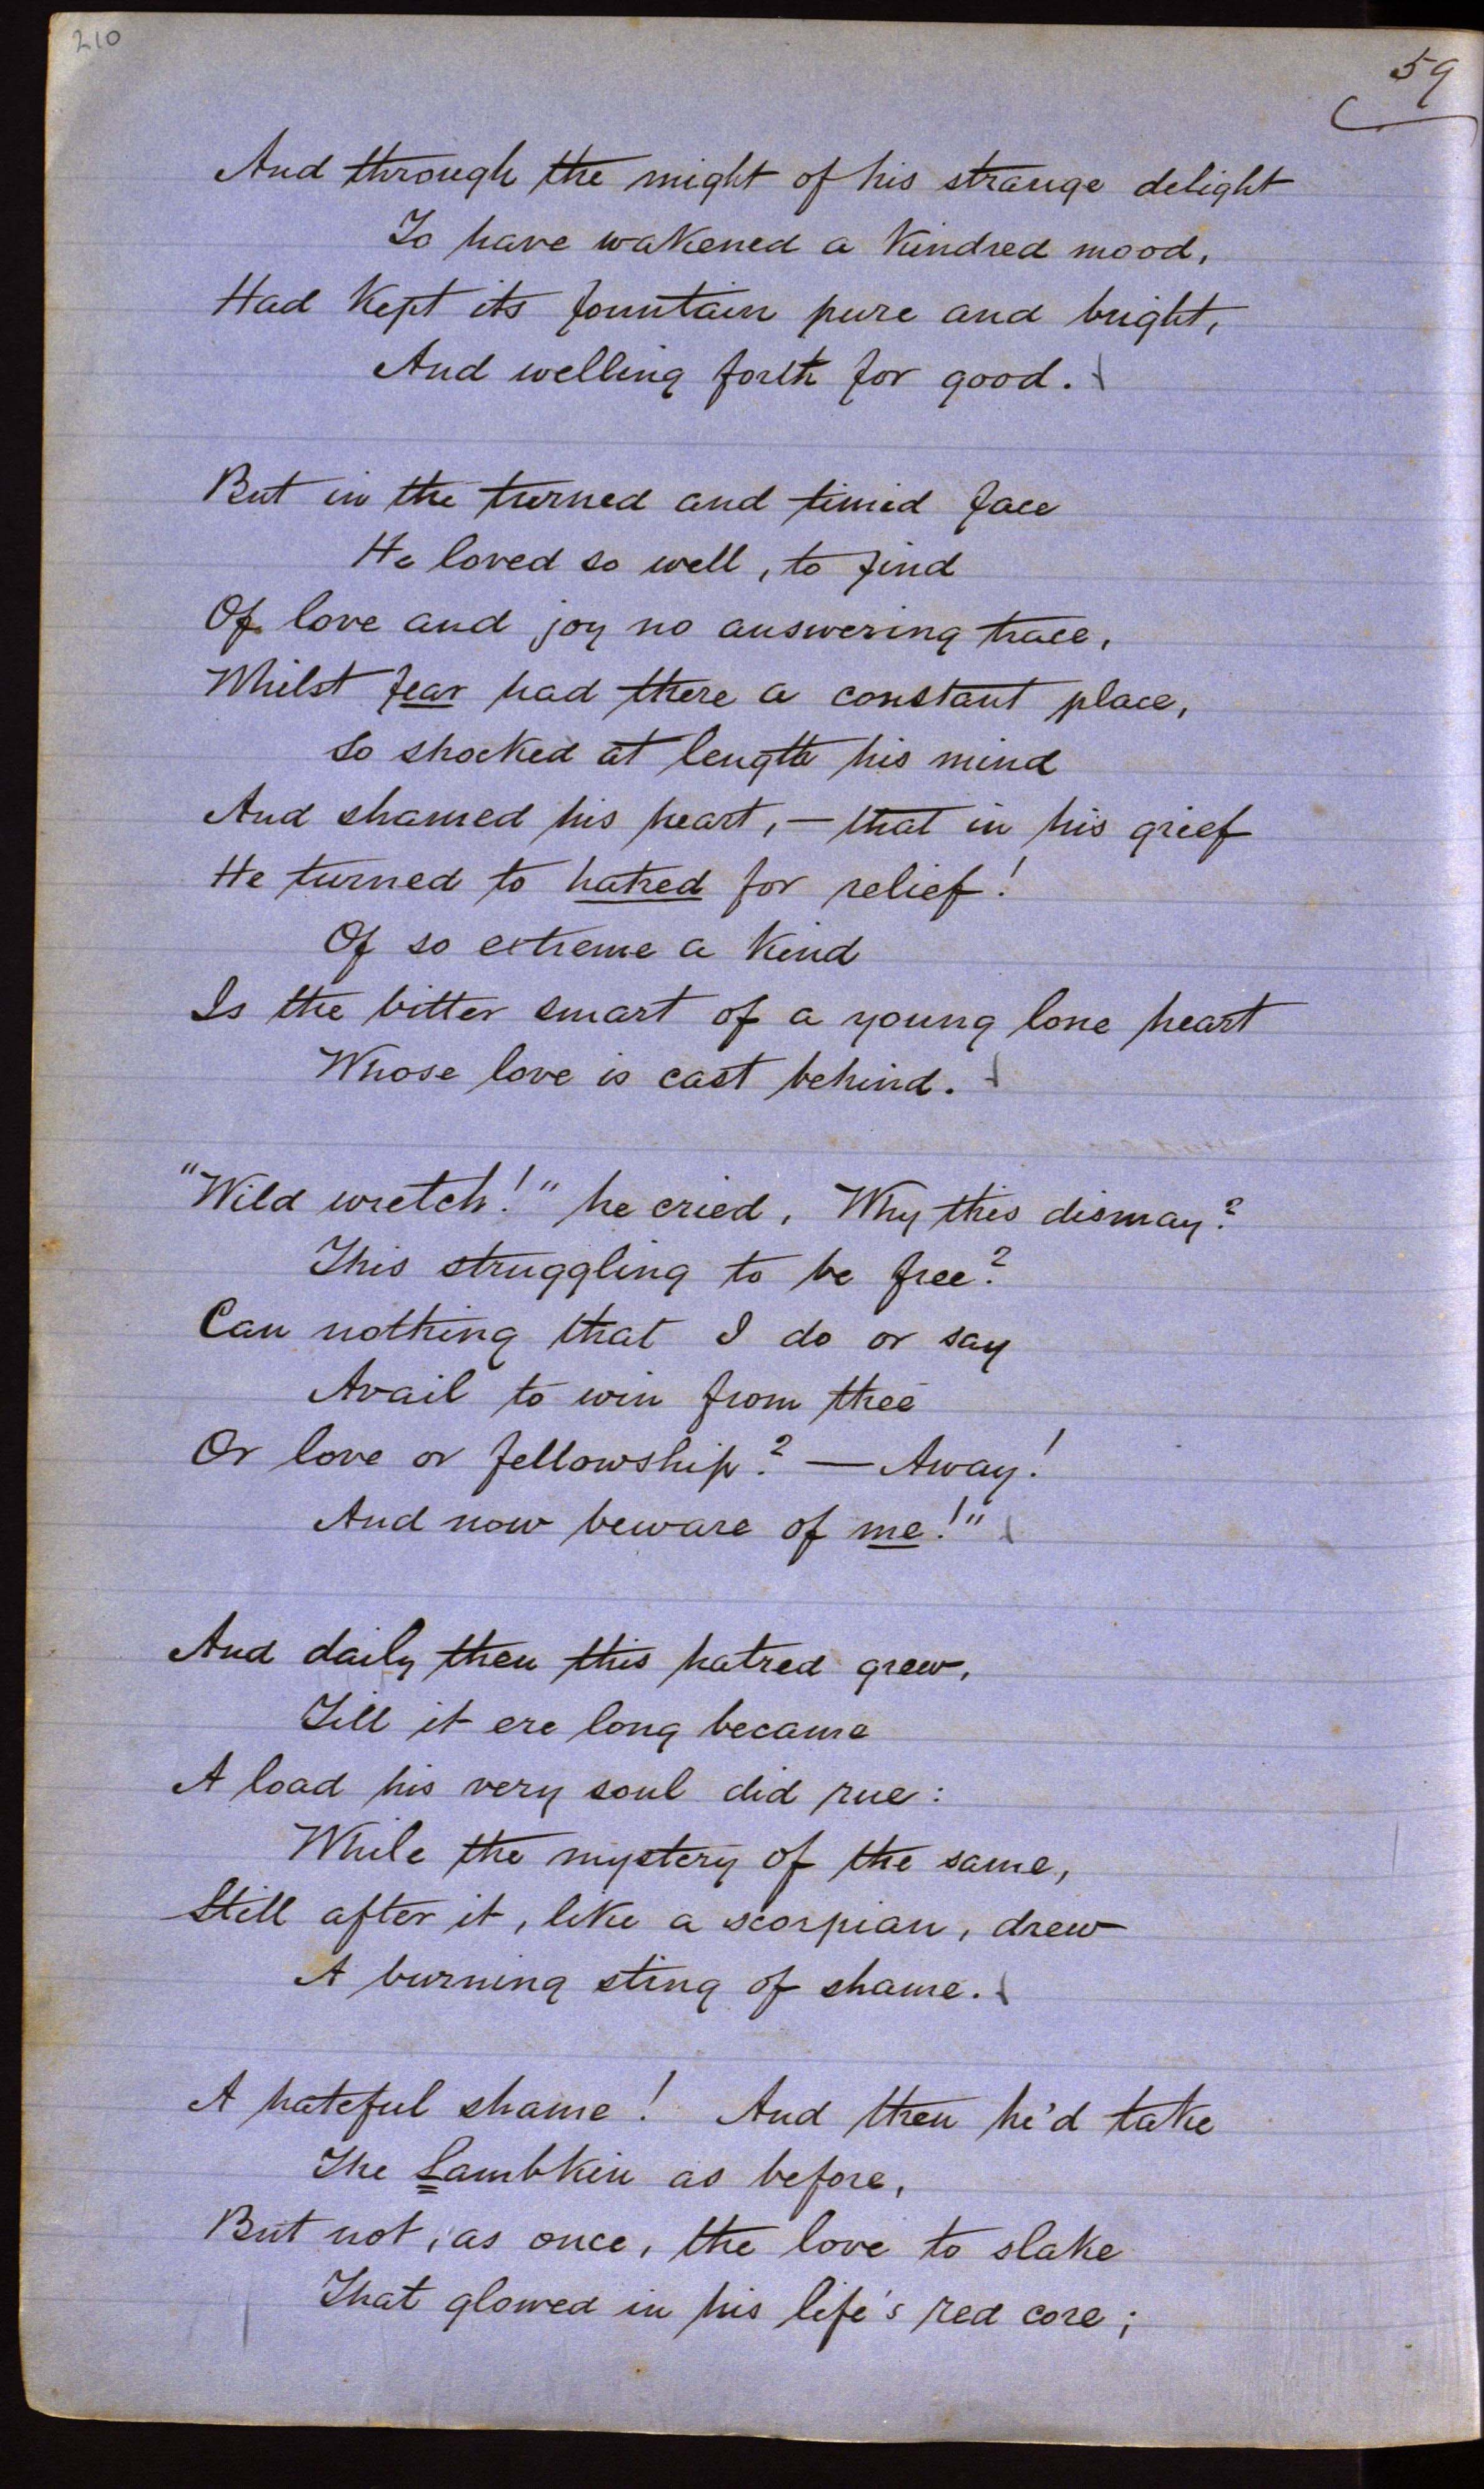 210
59
And through the might of his strange delight
To have wakened a kindred mood,
Had kept its fountain pure and bright,
And welling forth for good.
But in the turned and timid face
He loved so well, to find
Of love and joy no answering trace,
Whilst fear had there a constant place,
So shocked at length his mind
And shamed his heart, — that in his grief
He turned to hatred for relief!
Of so extreme a kind
Is the bitter smart of a young lone heart
Whose love is cast behind.
"Wild wretch!" he cried, Why this dismay?
This struggling to be free?
Can nothing that I do or say
Avail to win from thee
Or love or fellowship? — Away!
And now beware of me!"
And daily then this hatred grew,
Till it ere long became
A load his very soul did rue:
While the mystery of the same,
Still after it, like a scorpian, drew
A burning sting of shame.
A hateful shame! And then he'd take
The Lambkin as before,
But not, as once, the love to slake
That glowed in his life's red core;